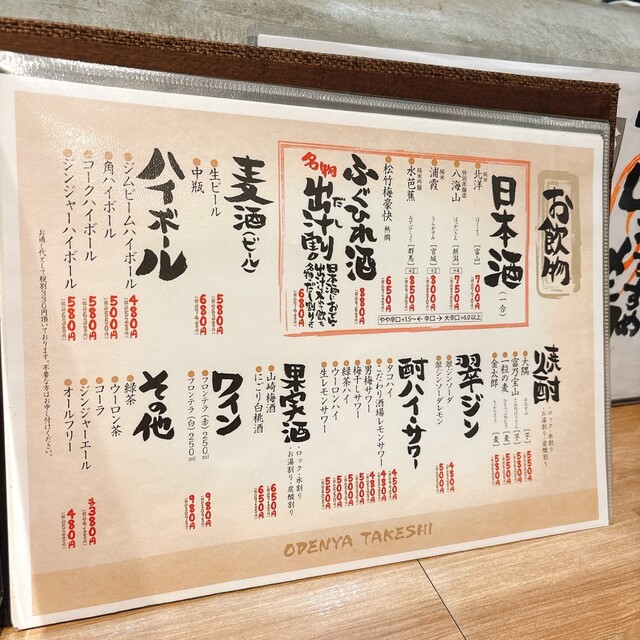 お飲物
日本酒（一合）
純米
北洋
［富山］
700円
特別本醸造
八海山
はっかいさん
［新潟］
+4
750円
純米
浦霞
うらかすみ
［宮城］
+2
800円
純米吟醸
水芭蕉
みずばしょう
［群馬］
+2
850円
松竹梅豪快
熱燗
650円
やや辛口 +1.5〜 辛口 → 大辛口 +6.0以上
ふぐひれ酒
880円
名物
出汁割り
だし
680円
麦酒（ビール）
生ビール
580円
中瓶
680円
ハイボール
ジムビームハイボール
480円
角ハイボール
500円
コークハイボール
580円
ジンジャーハイボール
580円
焼酎
・ロック・水割り
・お湯割り・炭酸割り
大隅
（芋）
550円
富乃宝山
（芋）
580円
一粒の麦
（麦）
550円
金太郎
（麦）
580円
翠ジン
翠ジンソーダ
480円
翠ジンソーダレモン
500円
酎ハイ・サワー
タコハイ
450円
こだわり酒場レモンサワー
480円
男梅サワー
480円
梅干しサワー
500円
緑茶ハイ
500円
ウーロンハイ
500円
生レモンサワー
550円
果実酒
・ロック・水割り
・お湯割り・炭酸割り
山崎梅酒
650円
にごり白桃酒
650円
ワイン
フロンテラ（赤）250ml
980円
フロンテラ（白）250ml
980円
その他
緑茶
ウーロン茶
コーラ
ジンジャーエール
各380円
オールフリー
480円
お通し代として税別330円頂いております。不要な方はお申し付けください。
ODENYA TAKESHI